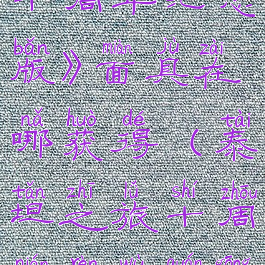 bǎn miàn jù zài
版》面具在
nǎ huò dé tài
哪获得（泰
tǎn zhī lǚ shí zhōu
坦之旅十周